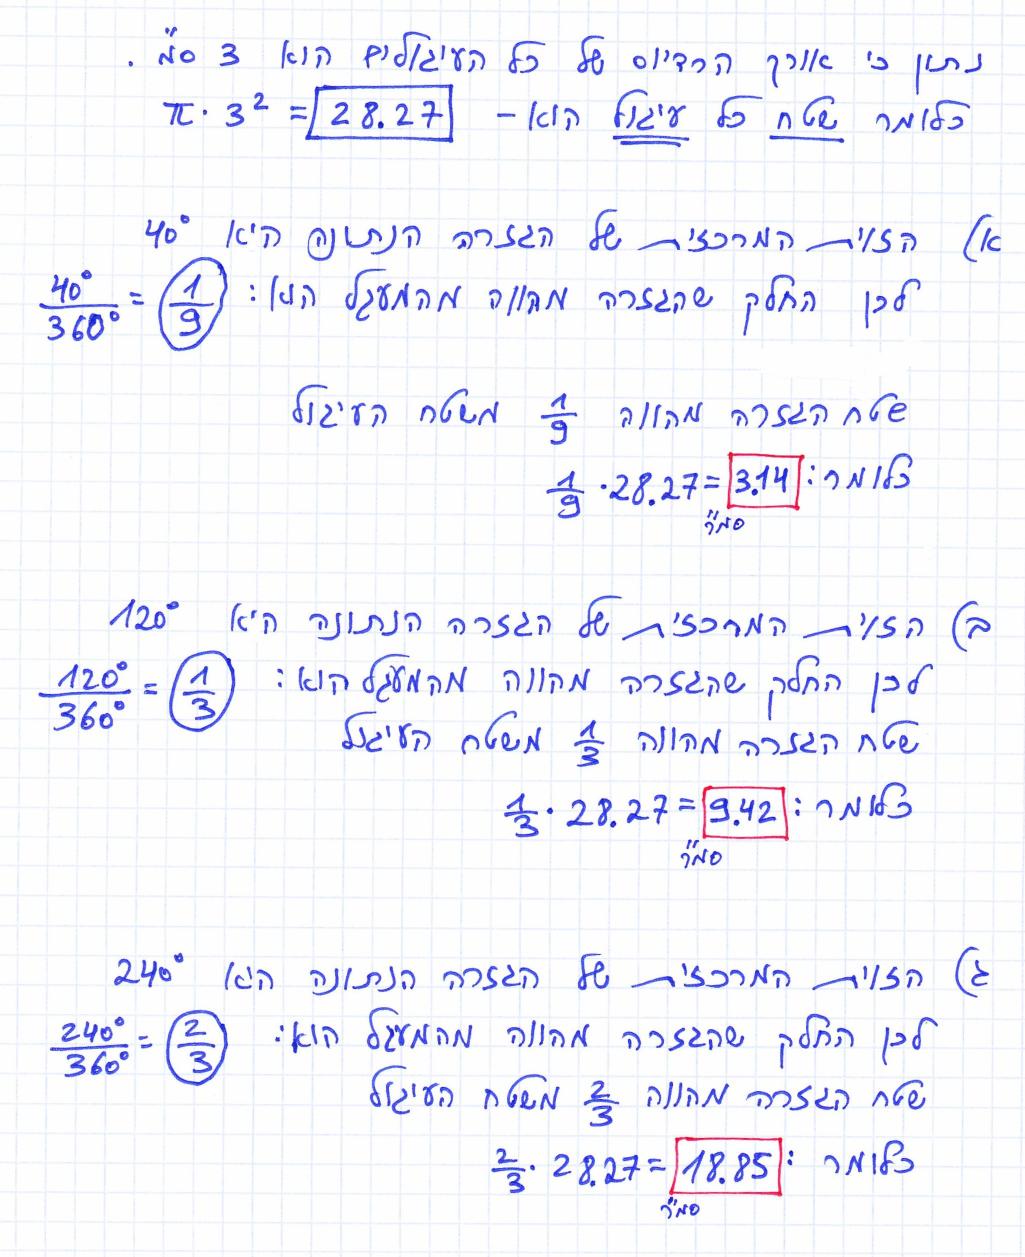 נתון כי אורך הרדיוס של כל העיגולים הוא 3 ס"מ.
כלומר שטח כל עיגול הוא - π · 3² = 28.27
א) הזוית המרכזית של הגזרה הנתונה היא 40°
לכן החלק שהגזרה מהווה מהמעגל הוא: 40°/360° = 1/9
שטח הגזרה מהווה 1/9 משטח העיגול
כלומר: 1/9 · 28.27 = 3.14
סמ"ר
ב) הזוית המרכזית של הגזרה הנתונה היא 120°
לכן החלק שהגזרה מהווה מהמעגל הוא: 120°/360° = 1/3
שטח הגזרה מהווה 1/3 משטח העיגול
כלומר: 1/3 · 28.27 = 9.42
סמ"ר
ג) הזוית המרכזית של הגזרה הנתונה היא 240°
לכן החלק שהגזרה מהווה מהמעגל הוא: 240°/360° = 2/3
שטח הגזרה מהווה 2/3 משטח העיגול
כלומר: 2/3 · 28.27 = 18.85
סמ"ר